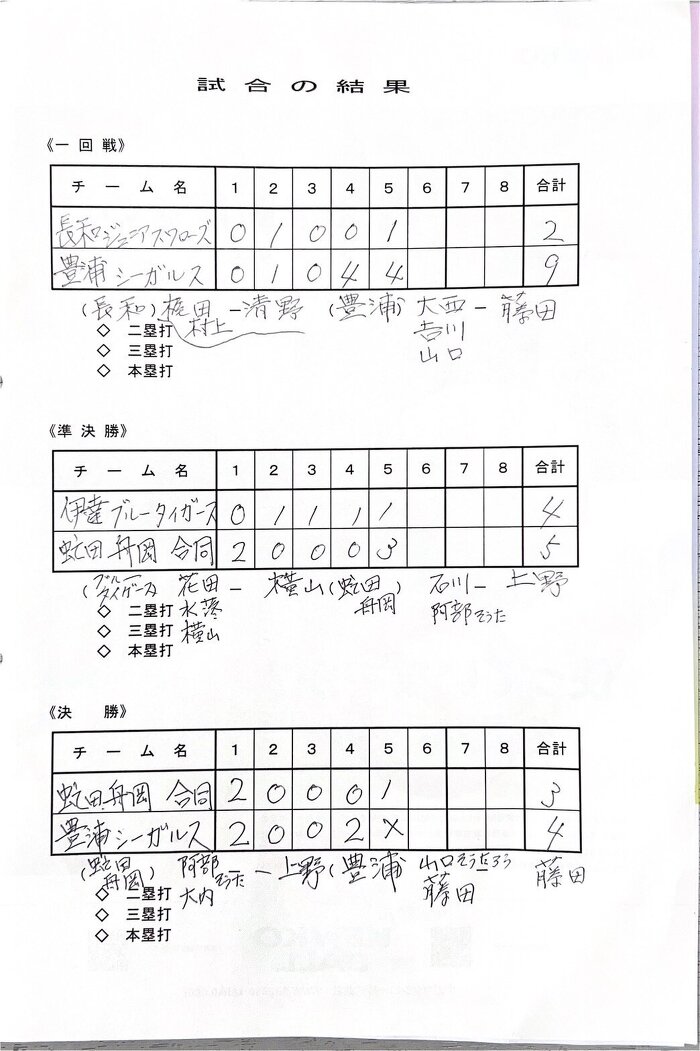 試合の結果
《一回戦》
チーム名 1 2 3 4 5 6 7 8 合計
長和ジュニアスワローズ 0 1 0 0 1 2
豊浦シーガルス 0 1 0 4 4 9
(長和) 植田 - 清野 (豊浦) 大西 - 藤田
◇ 二塁打 村上 吉川
◇ 三塁打 山口
◇ 本塁打
《準決勝》
チーム名 1 2 3 4 5 6 7 8 合計
伊達ブルータイガース 0 1 1 1 1 4
虻田舟岡 合同 2 0 0 0 3 5
(ブルータイガース) 花田 - 横山 (虻田舟岡) 石川 - 上野
◇ 二塁打 水落 阿部そうた
◇ 三塁打 横山
◇ 本塁打
《決 勝》
チーム名 1 2 3 4 5 6 7 8 合計
虻田舟岡 合同 2 0 0 0 1 3
豊浦シーガルス 2 0 0 2 X 4
(虻田舟岡) 阿部そうた - 上野 (豊浦 山口そうたろう - 藤田
◇ 二塁打 大内 藤田
◇ 三塁打
◇ 本塁打